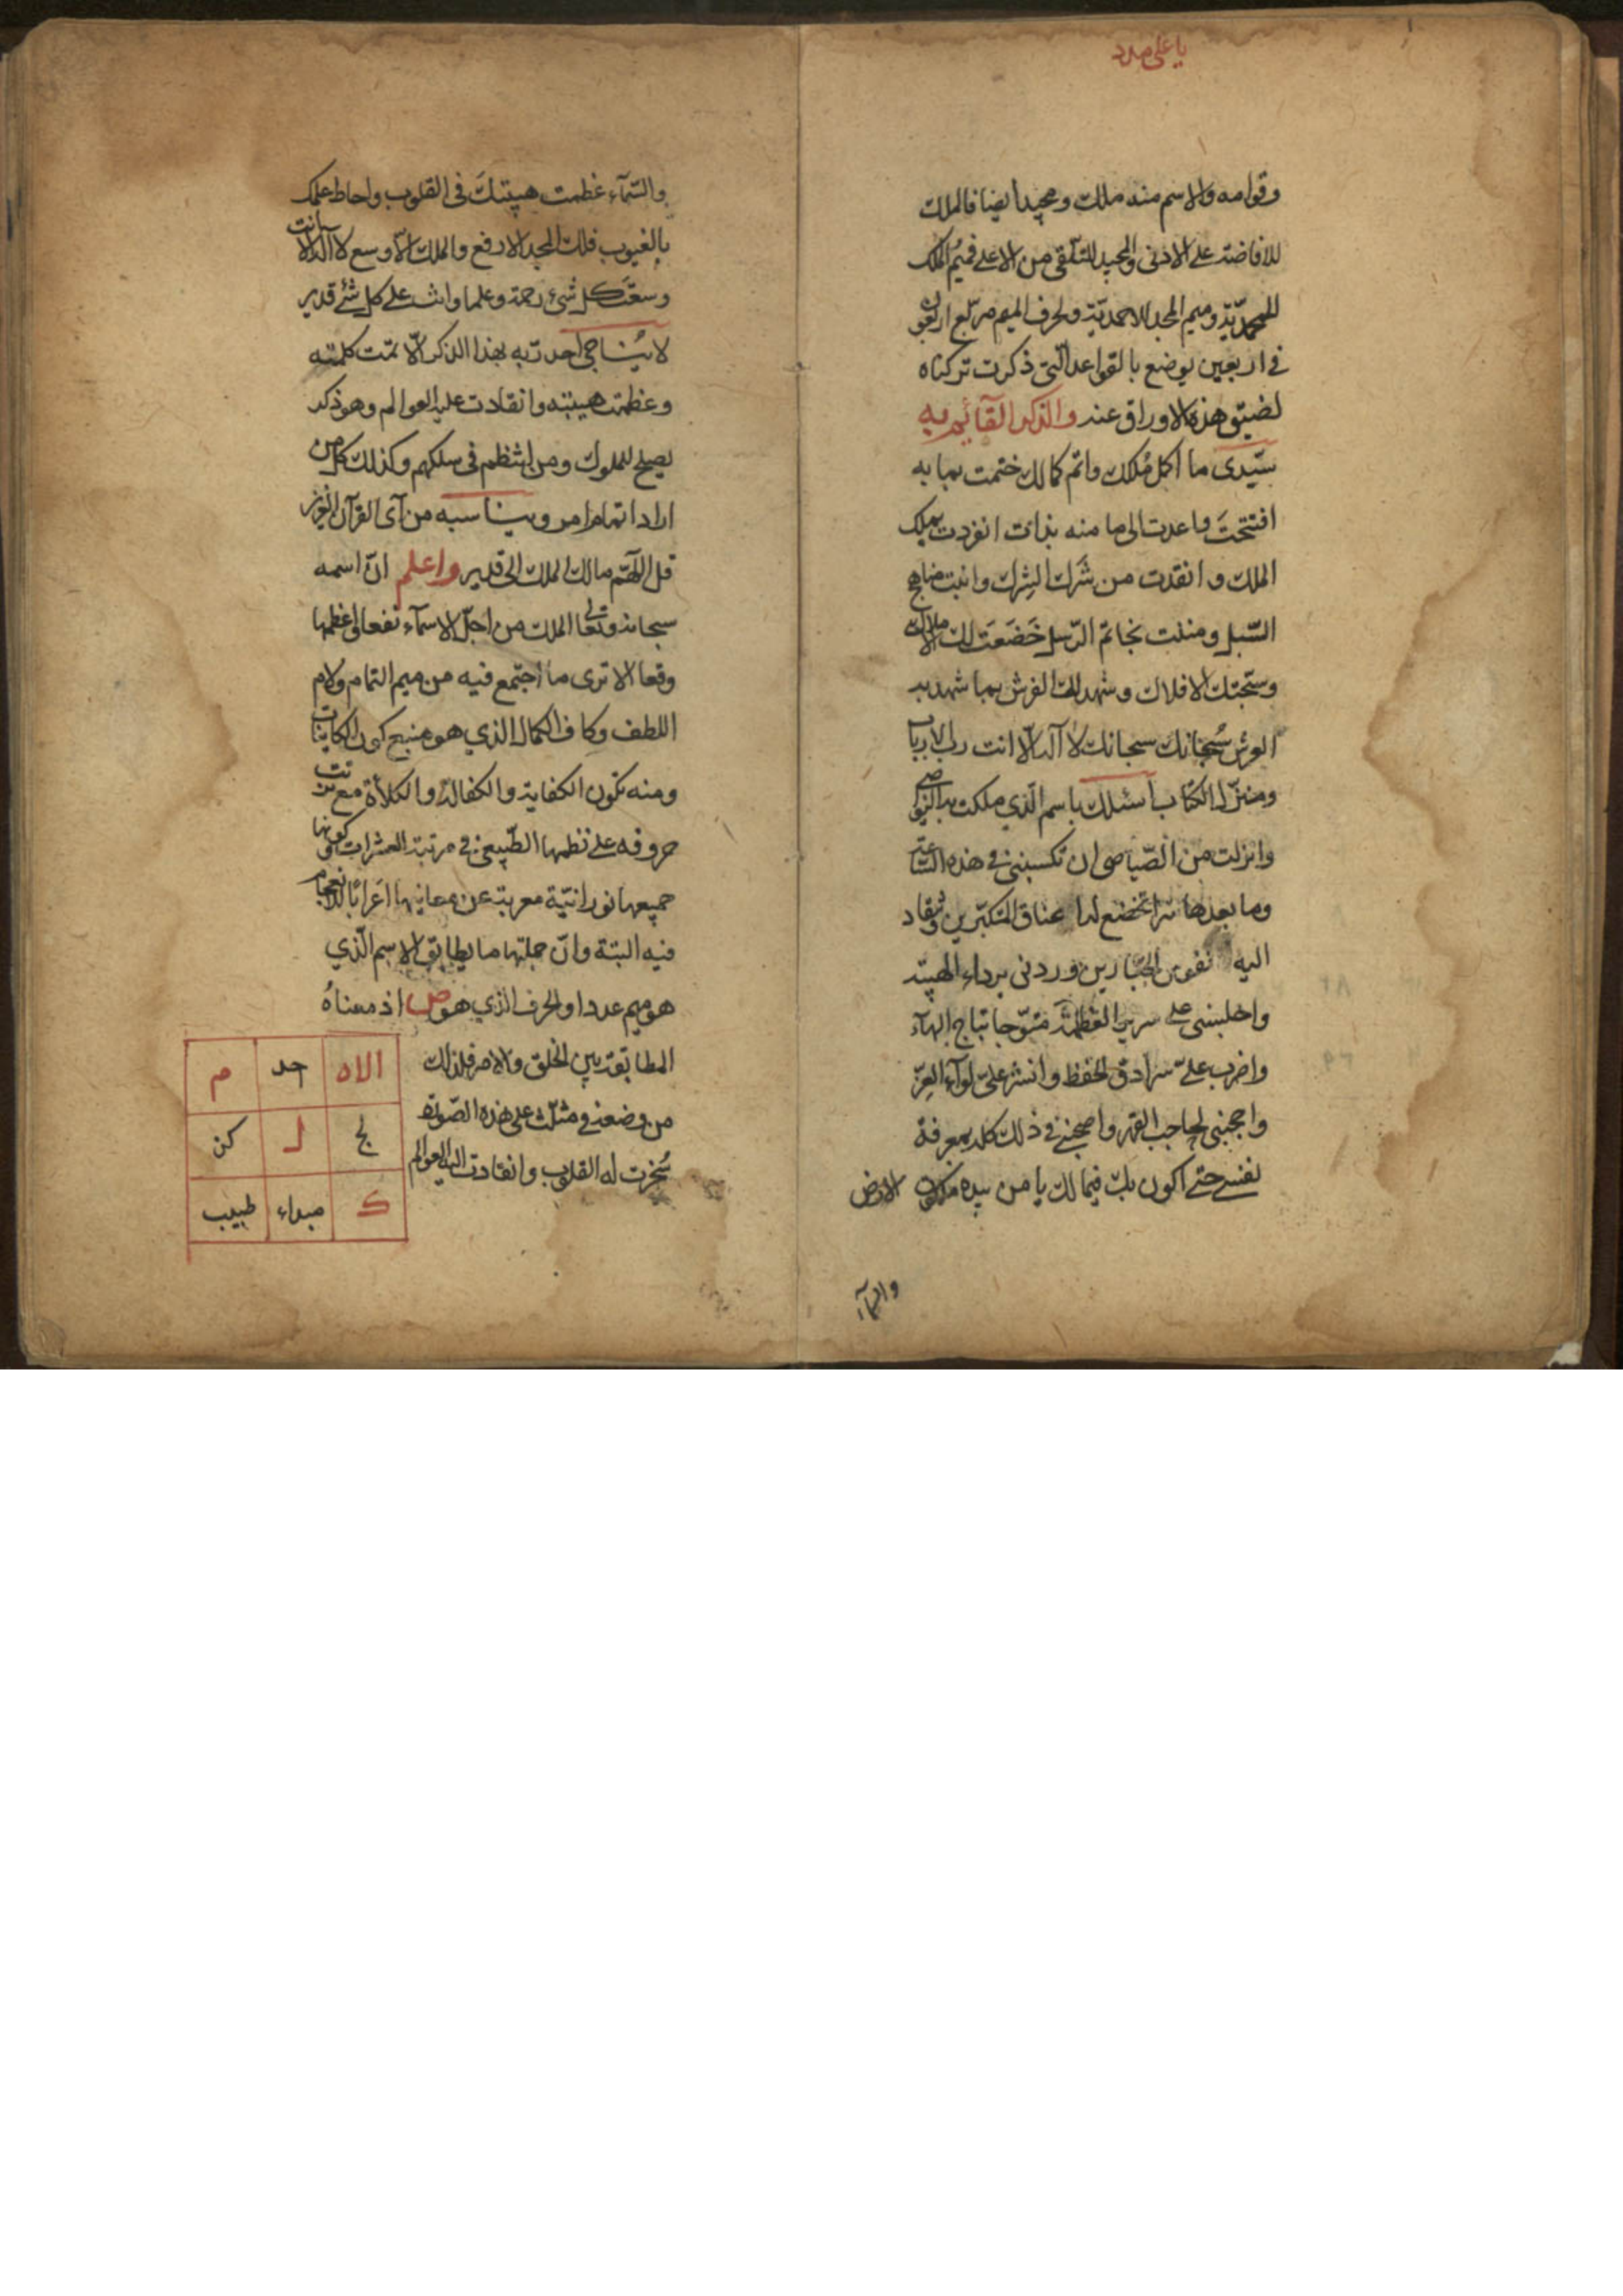 يا على مدد
وقوامه والاسم منه ملك ومجيد ايضا فالملك
للافاضة على الادنى والمجيد للتلقى من الاعلى فميم الملك
للمحمديّة وميم المجد للاحمديّة ولحرف الميم مربّع اربعون
فى اربعين يوضع بالقواعد الّتى ذكرت تركناه
لضيق هذه الاوراق عند والذكر القآئم به
سيّدى ما اكمل مُلكك واتم كمالك ختمت بما به
افتتحتَ واعدت الى ما منه بدات انفردت بملك
الملك وانقذت من شَرَك الشِرك وانبت مناهج
السّبل ومننت بخاتم الرّسل خَضَعَت لك الاملاك
وسبّحتك الافلاك وشهد لك الفرش بما شهد به
العرش سُبحانك سبحانك لا آله الّا انت رب الارباب
ومنزّل الكتاب اسئلك باسم الّذي ملكت به النواصى
وانزلت من الصّياصى ان تكسبنى فى هذه السّاعة
وما بعدها سرا تخضع له اعناق المتكبّرين وتنقاد
اليه نفوس الجبّارين وردنى برداء الهيبة
واجلسنى على سرير العظمة متوّجا بتاج البهآء
واضرب علىّ سرادق الحفظ وانشر علىّ لوآء العزّ
واحجبنى بحاجب القهر واصحبنى فى ذلك كله بمعرفة
نفسى حتى اكون بك فيما لك يا من بيده ملكوت الارض
والسمآء
والسّمآء عظمت هيبتكَ فى القلوب واحاط علمك
بالغيوب فلك المجد الارفع والملك الاوسع لا آله الا انت
وسعتَ كل شىء رحمة وعلما وانت على كل شىء قدير
لا يُناجى احد ربّه بهذا الذكر الّا تمّت كلمته
وعظمت هيبته وانقادت عليه العوالم وهو ذكر
يصلح للملوك ومن انتظم فى سلكهم وكذلك كل من
اراد اتمام امر ويناسبه من آى القرآن العزيز
قل اللّهم مالك الملك الى قدير واعلم انّ اسمه
سبحانه وتعالى الملك من اجلّ الاسمآء نفعا واعظمها
وقعا الا ترى ما اجتمع فيه من ميم التمام ولام
اللطف وكاف الكمال الذي هو منبع كون الكاينات
ومنه تكون الكفاية والكفالة والكلاة مع ترتب
حروفه على نظمها الطّبيعى فى مرتبة العشرات كونها
جميعها نورانيّة معربة عن معانيها اعرابا لا انعجام
فيه البتة وانّ جملتها ما يطابق الاسم الّذي
هو ميم عددا والحرف الذي هو ص اذ معناهُ
المطابقة بين الخلق والامر فلذلك
من وضعه فى مثلّث على هذه الصّورة
سُخرت له القلوب وانقادت اليه العوالم
الاه احد م
لج ل كن
ك مبداء طبيب